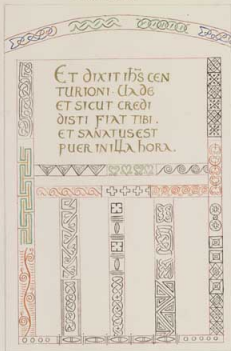 Et dixit ihs cen
turioni · Uade
et sicut credi
disti fiat tibi .
et sanatus est
puer in illa hora .